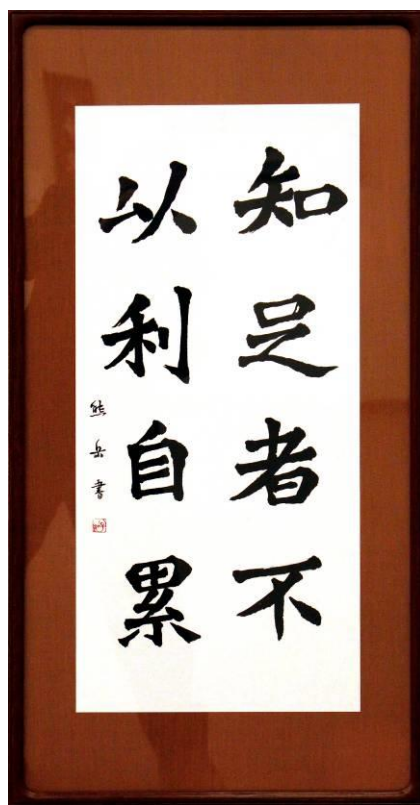 知足者不
以利自累
熊岳書